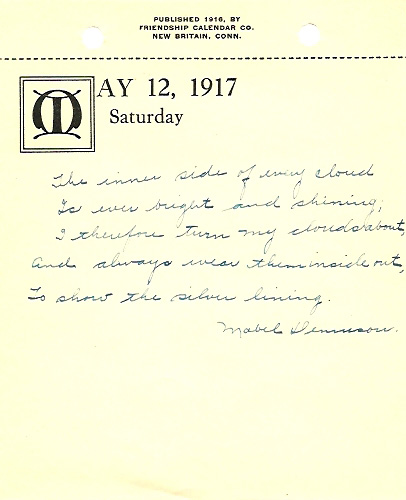 PUBLISHED 1916, BY
FRIENDSHIP CALENDAR CO.
NEW BRITAIN, CONN.
MAY 12, 1917
Saturday
The inner side of every cloud
Is ever bright and shining;
I therefore turn my clouds about,
And always wear them inside out,
To show the silver lining.
Mabel Dennison.